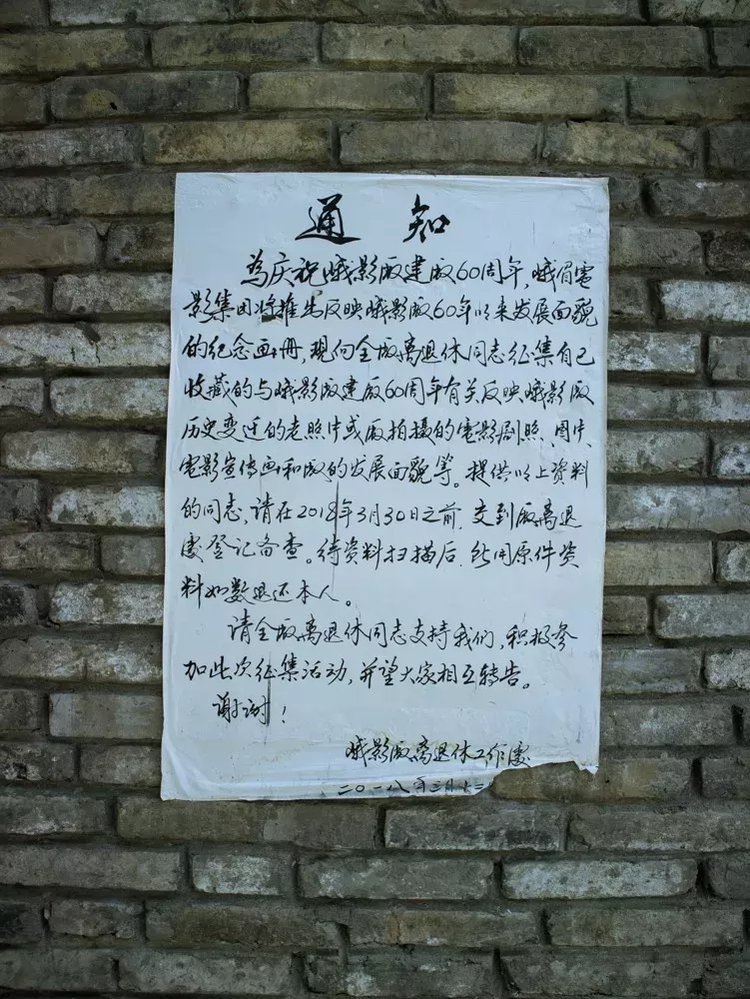 通知
为庆祝峨影厂建厂60周年，峨眉電
影集团将推出反映峨影厂60年以来发展面貌
的纪念画册，现向全厂离退休同志征集自己
收藏的与峨影厂建厂60周年有关反映峨影厂
历史变迁的老照片或厂拍摄的電影剧照、图片、
電影宣传画和厂的发展面貌等。提供以上资料
的同志，请在2018年3月30日之前，交到厂离退
处登记备查。待资料扫描后，所用原件资
料如数退还本人。
请全厂离退休同志支持我们，积极参
加此次征集活动，并望大家相互转告。
谢谢！
峨影厂离退休工作处
二〇一八年三月十二